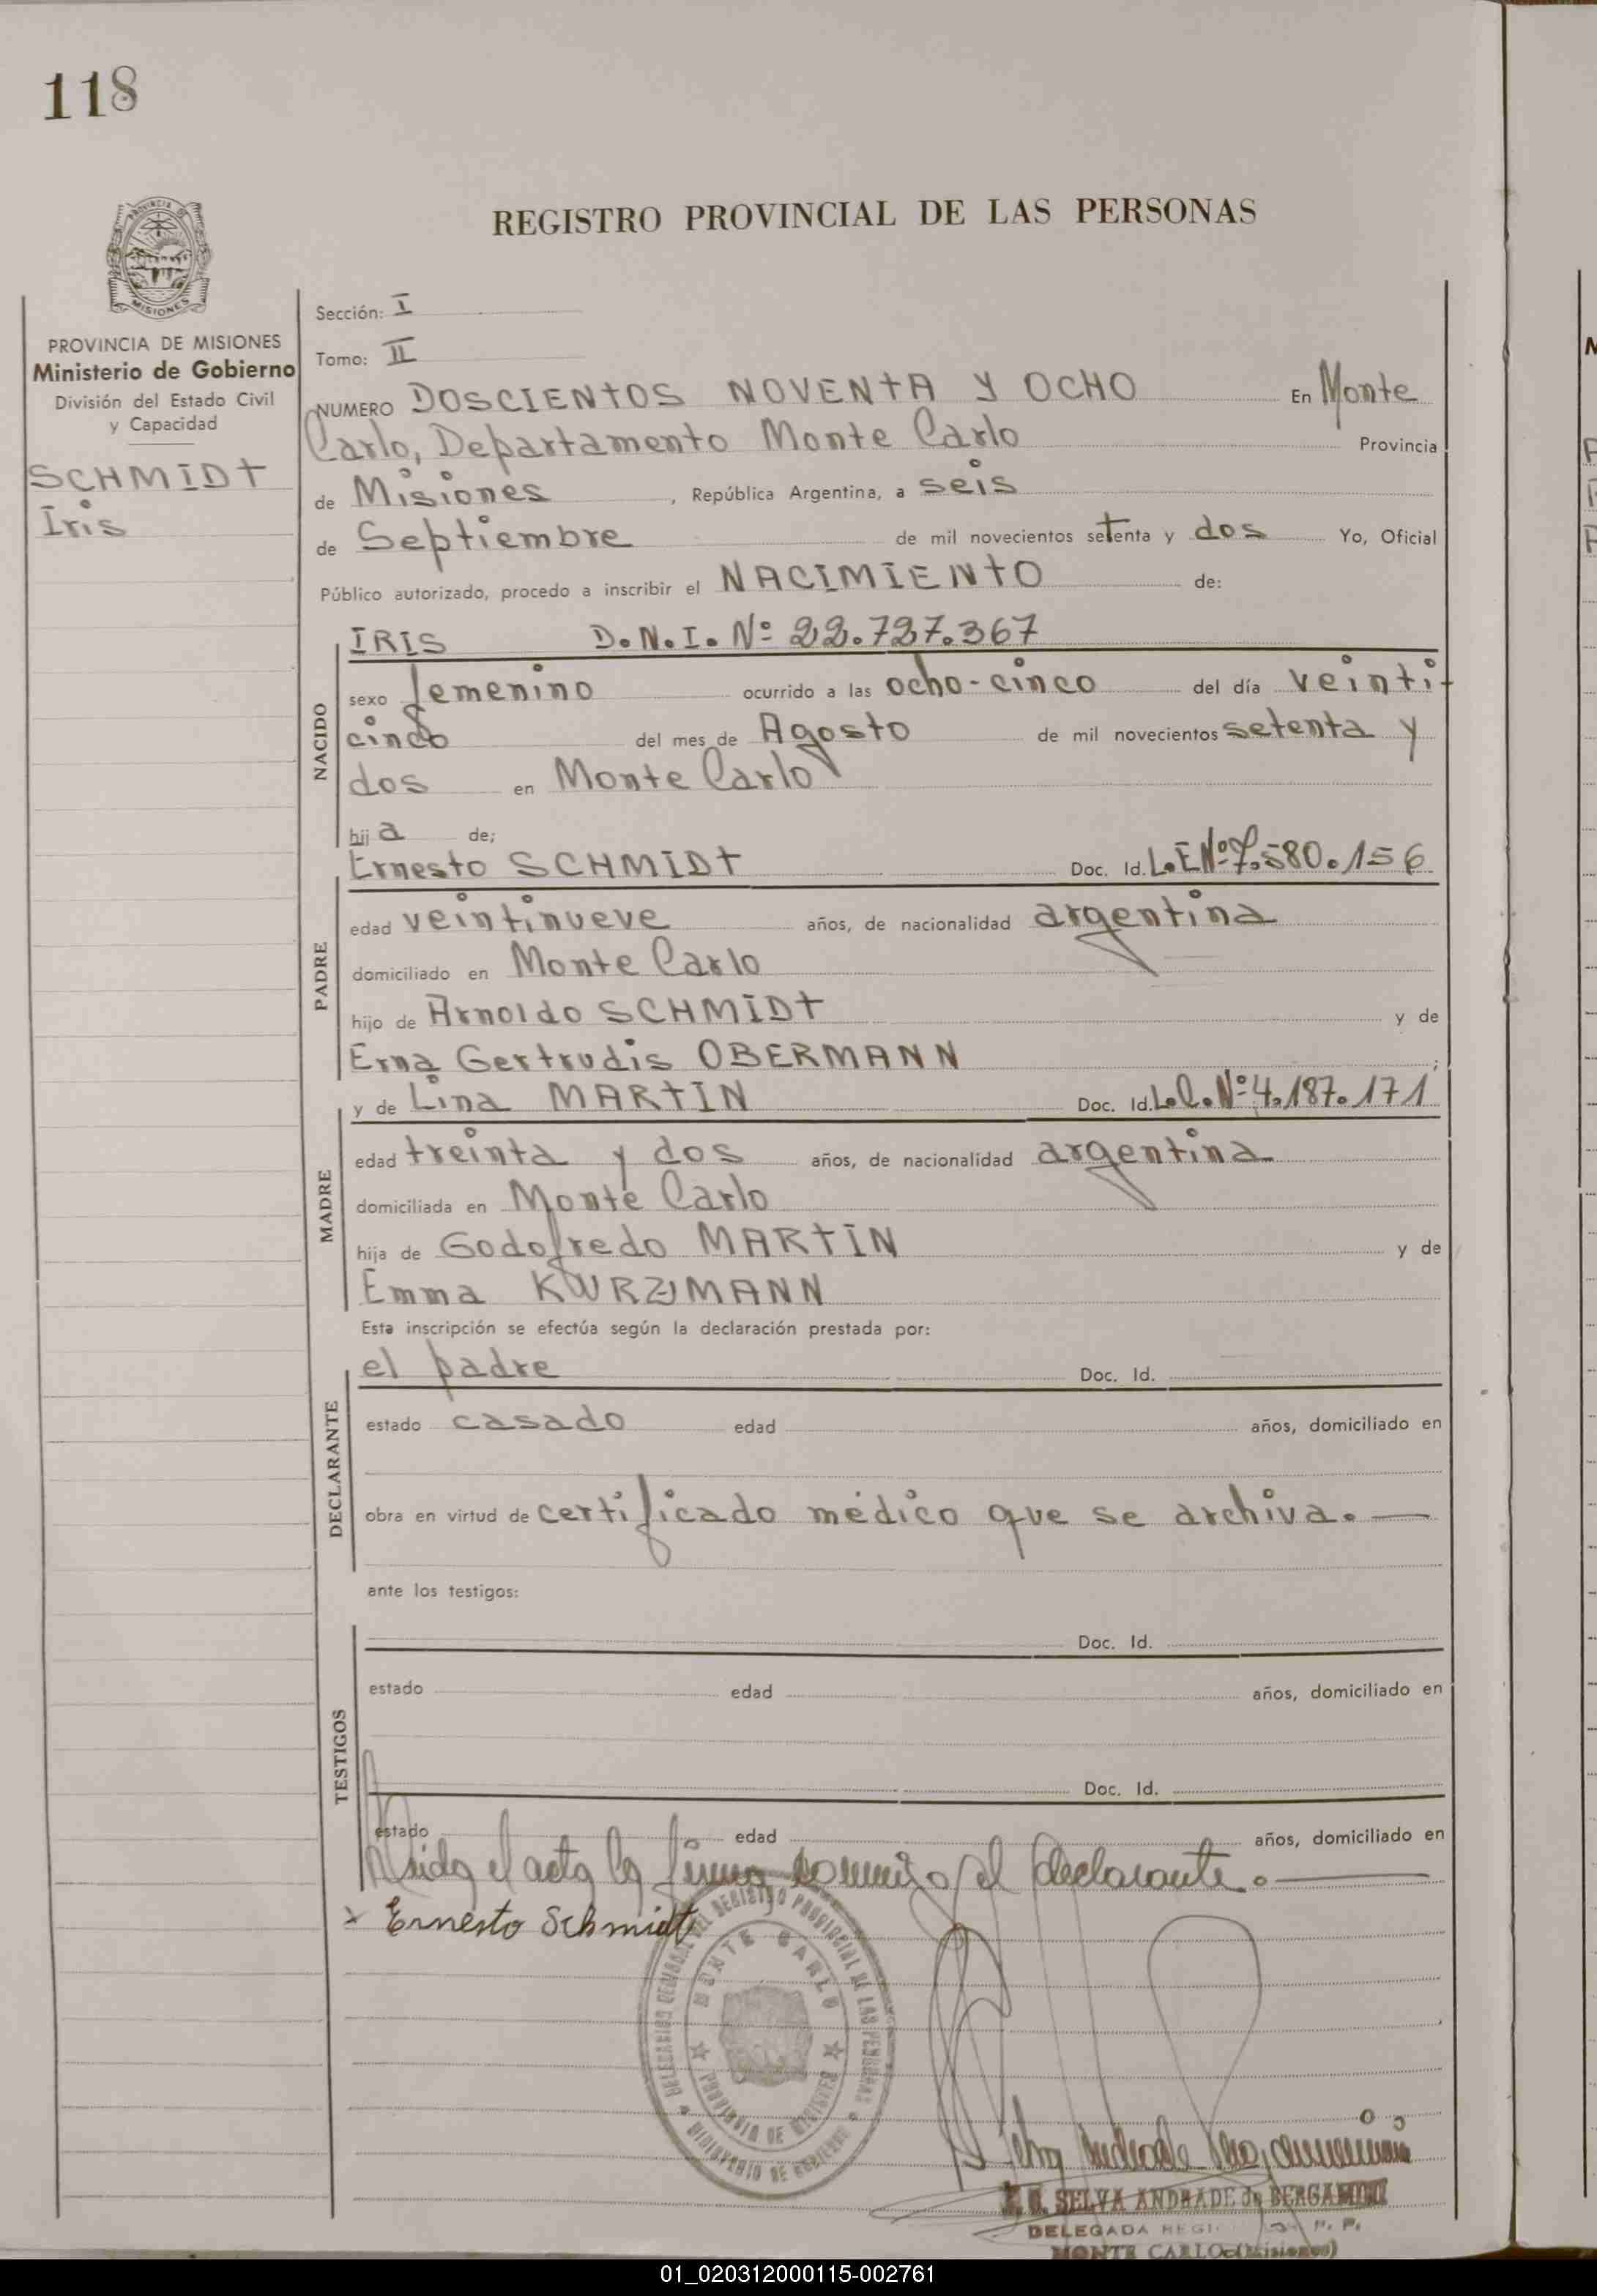 118
REGISTRO PROVINCIAL DE LAS PERSONAS
PROVINCIA DE
MISIONES
PROVINCIA DE MISIONES
Ministerio de Gobierno
División del Estado Civil
y Capacidad
SCHMIDT
Iris
Sección: I
Tomo: II
NUMERO DOSCIENTOS NOVENTA Y OCHO En Monte
Carlo, Departamento Monte Carlo Provincia
de Misiones, República Argentina, a seis
de Septiembre de mil novecientos setenta y dos Yo, Oficial
Público autorizado, procedo a inscribir el NACIMIENTO de:
NACIDO
IRIS D.N.I. Nº 22.727.367
sexo femenino ocurrido a las ocho-cinco del día veinti-
cinco del mes de Agosto de mil novecientos setenta y
dos en Monte Carlo
hija de;
PADRE
Ernesto SCHMIDT Doc. Id. L.E Nº 7.580.156
edad veintinueve años, de nacionalidad argentina
domiciliado en Monte Carlo
hijo de Arnoldo SCHMIDT y de
Erna Gertrudis OBERMANN;
MADRE
y de Lina MARTIN Doc. Id. L.C. Nº 4.187.171
edad treinta y dos años, de nacionalidad argentina
domiciliada en Monte Carlo
hija de Godofredo MARTIN y de
Emma KURZMANN
Esta inscripción se efectúa según la declaración prestada por:
DECLARANTE
el padre Doc. Id.
estado casado edad años, domiciliado en
obra en virtud de certificado médico que se archiva.—
ante los testigos:
TESTIGOS
Doc. Id.
estado edad años, domiciliado en
Doc. Id.
estado edad años, domiciliado en
Leida el acta la firma conmigo el declarante.—
x Ernesto Schmidt
REGISTRO PROVINCIAL DE LAS PERSONAS
MONTE CARLO
PROVINCIA DE MISIONES
MINISTERIO DE GOBIERNO
SELVA ANDRADE de BERGAMINI
DELEGADA
MONTE CARLO (Misiones)
01_020312000115-002761